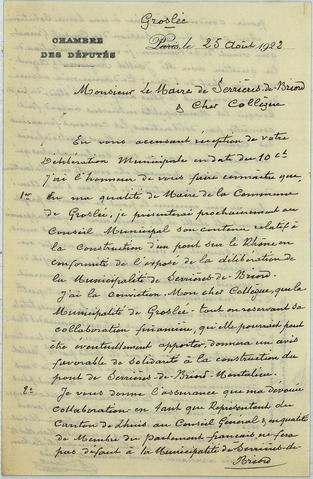 Groslée
CHAMBRE
DES DÉPUTÉS
Paris, le 25 Août 1922
Monsieur Le Maire de Serrières-de-Briord
& Cher Collègue
En vous accusant réception de votre
Délibération Municipale en date du 10 ct
J'ai l'honneur de vous faire connaître que,
1º En ma qualité de Maire de la Commune
de Groslée, je présenterai prochainement au
Conseil Municipal son contenu relatif à
la Construction d'un pont sur le Rhône en
conformité de l'exposé de la délibération de
la Municipalité de Serrières-de-Briord.
J'ai la Conviction, Mon cher Collègue, que la
Municipalité de Groslée - tout en réservant sa
collaboration financière, qu'elle pourrait peut
être éventuellement apporter, donnera un avis
favorable de Solidarité à la construction du
pont de Serrières-de-Briord-Montalieu.
2º Je vous donne l'assurance que ma dévouée
Collaboration en tant que Représentant du
Canton de Lhuis au Conseil Général, & en qualité
de Membre du Parlement français ne fera
pas défaut à la Municipalité de Serrières-de-
Briord